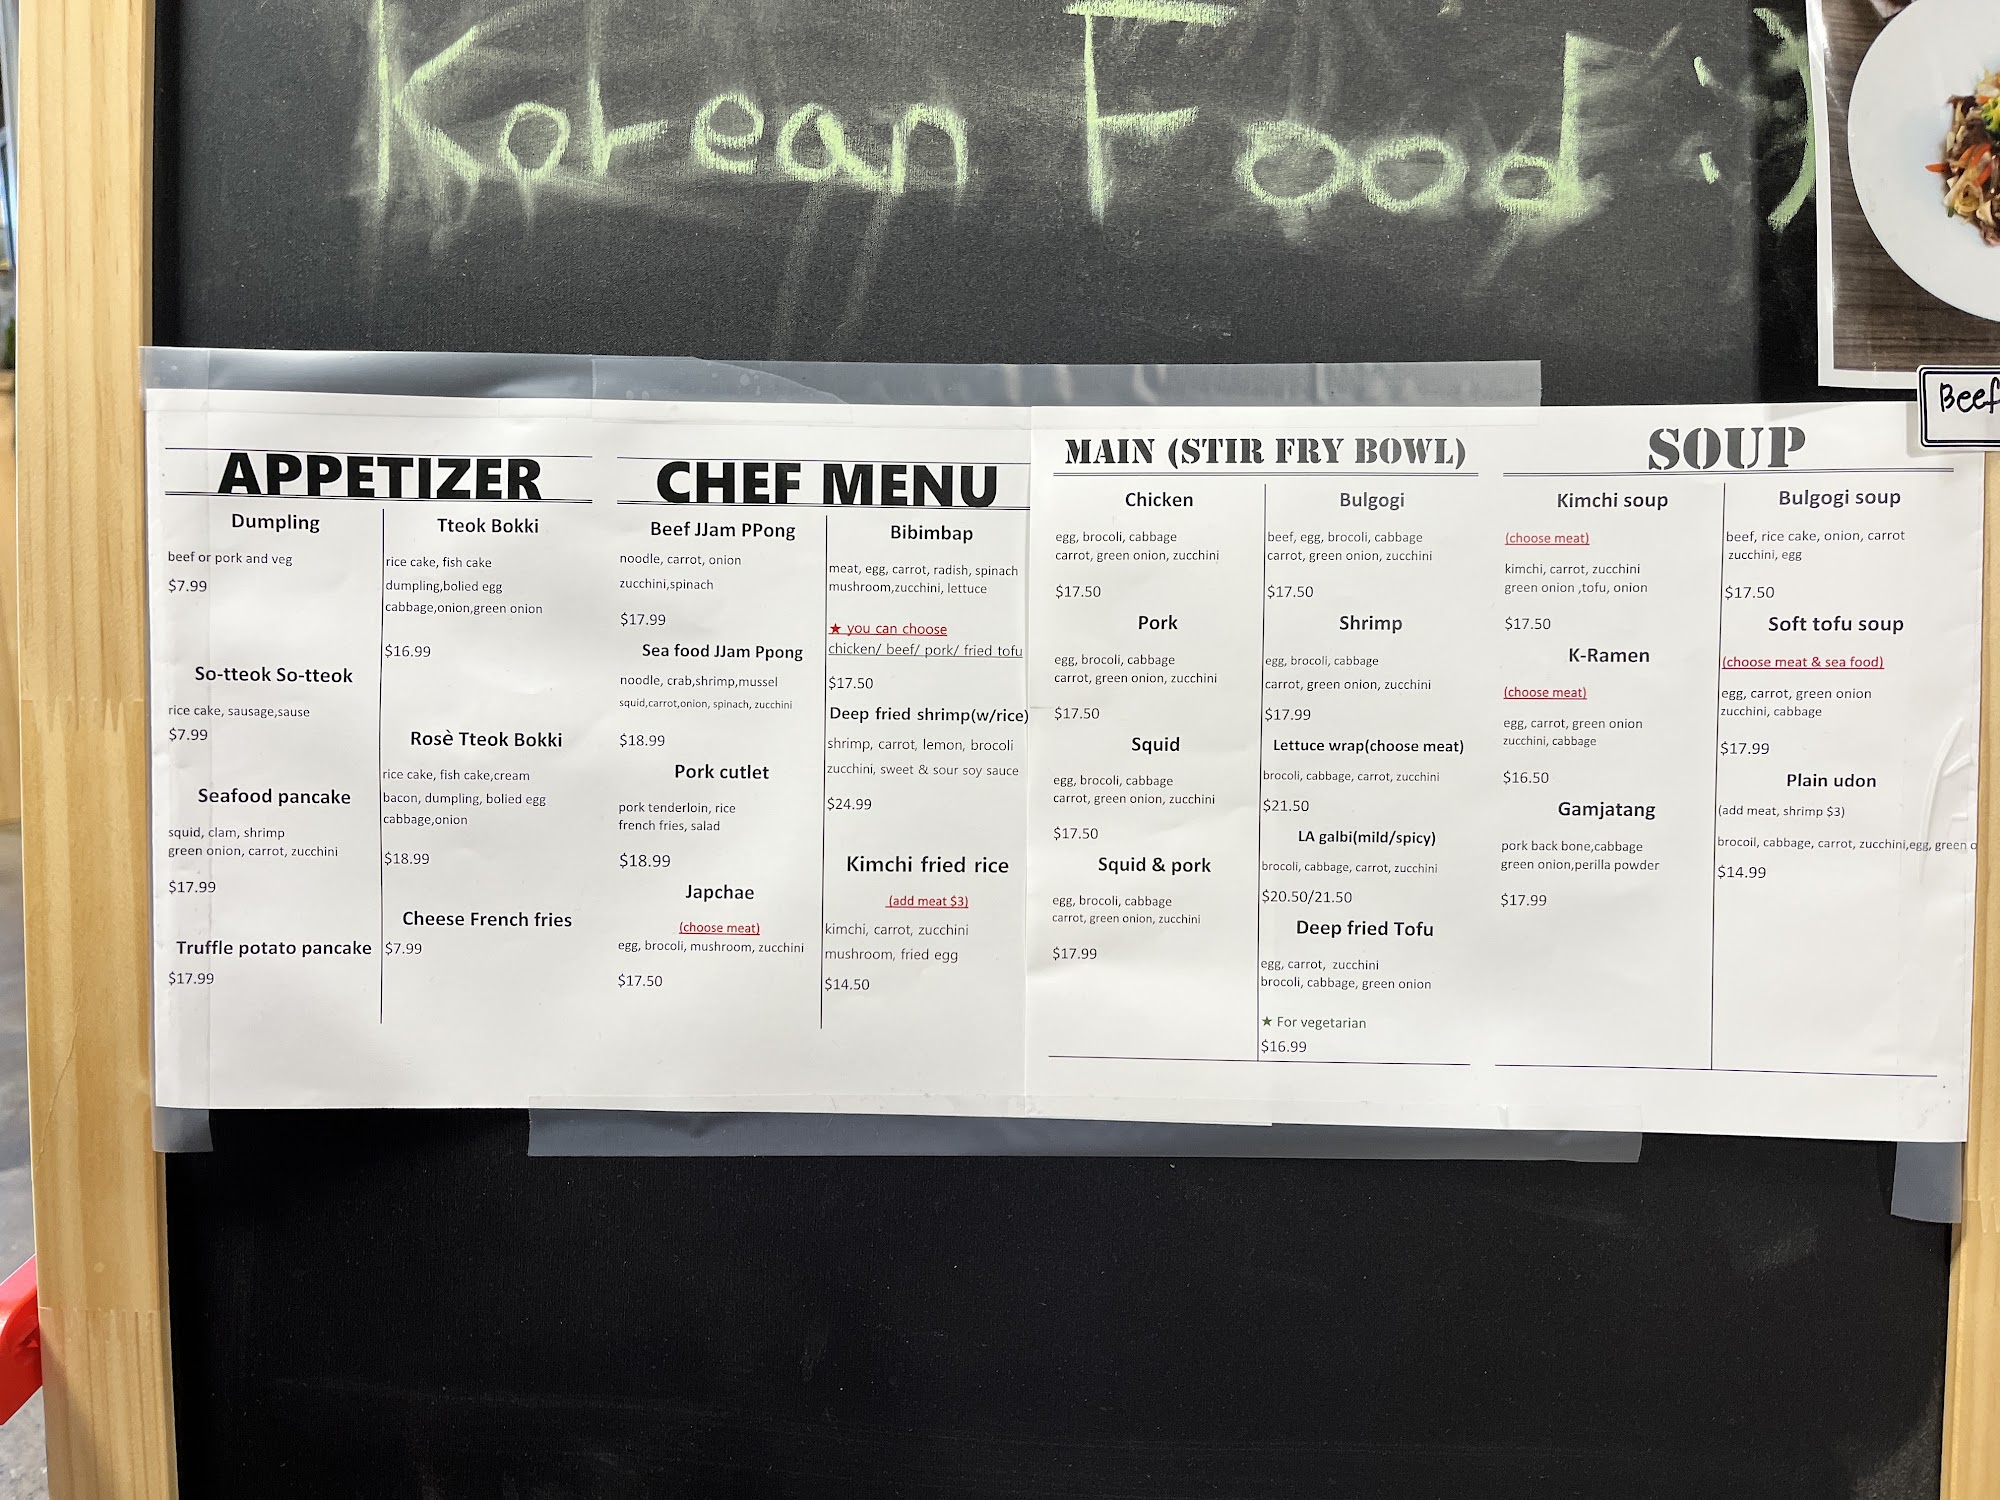 Korean Food :)
Beef
APPETIZER
Dumpling
beef or pork and veg
$7.99
So-tteok So-tteok
rice cake, sausage,sause
$7.99
Seafood pancake
squid, clam, shrimp
green onion, carrot, zucchini
$17.99
Truffle potato pancake
$17.99
Tteok Bokki
rice cake, fish cake
dumpling,bolied egg
cabbage,onion,green onion
$16.99
Rosè Tteok Bokki
rice cake, fish cake,cream
bacon, dumpling, bolied egg
cabbage,onion
$18.99
Cheese French fries
$7.99
CHEF MENU
Beef JJam PPong
noodle, carrot, onion
zucchini,spinach
$17.99
Sea food JJam Ppong
noodle, crab,shrimp,mussel
squid,carrot,onion, spinach, zucchini
$18.99
Pork cutlet
pork tenderloin, rice
french fries, salad
$18.99
Japchae
(choose meat)
egg, brocoli, mushroom, zucchini
$17.50
Bibimbap
meat, egg, carrot, radish, spinach
mushroom,zucchini, lettuce
★ you can choose
chicken/ beef/ pork/ fried tofu
$17.50
Deep fried shrimp(w/rice)
shrimp, carrot, lemon, brocoli
zucchini, sweet & sour soy sauce
$24.99
Kimchi fried rice
(add meat $3)
kimchi, carrot, zucchini
mushroom, fried egg
$14.50
MAIN (STIR FRY BOWL)
Chicken
egg, brocoli, cabbage
carrot, green onion, zucchini
$17.50
Pork
egg, brocoli, cabbage
carrot, green onion, zucchini
$17.50
Squid
egg, brocoli, cabbage
carrot, green onion, zucchini
$17.50
Squid & pork
egg, brocoli, cabbage
carrot, green onion, zucchini
$17.99
Bulgogi
beef, egg, brocoli, cabbage
carrot, green onion, zucchini
$17.50
Shrimp
egg, brocoli, cabbage
carrot, green onion, zucchini
$17.99
Lettuce wrap(choose meat)
brocoli, cabbage, carrot, zucchini
$21.50
LA galbi(mild/spicy)
brocoli, cabbage, carrot, zucchini
$20.50/21.50
Deep fried Tofu
egg, carrot, zucchini
brocoli, cabbage, green onion
★ For vegetarian
$16.99
SOUP
Kimchi soup
(choose meat)
kimchi, carrot, zucchini
green onion ,tofu, onion
$17.50
K-Ramen
(choose meat)
egg, carrot, green onion
zucchini, cabbage
$16.50
Gamjatang
pork back bone,cabbage
green onion,perilla powder
$17.99
Bulgogi soup
beef, rice cake, onion, carrot
zucchini, egg
$17.50
Soft tofu soup
(choose meat & sea food)
egg, carrot, green onion
zucchini, cabbage
$17.99
Plain udon
(add meat, shrimp $3)
brocoil, cabbage, carrot, zucchini,egg, green o
$14.99